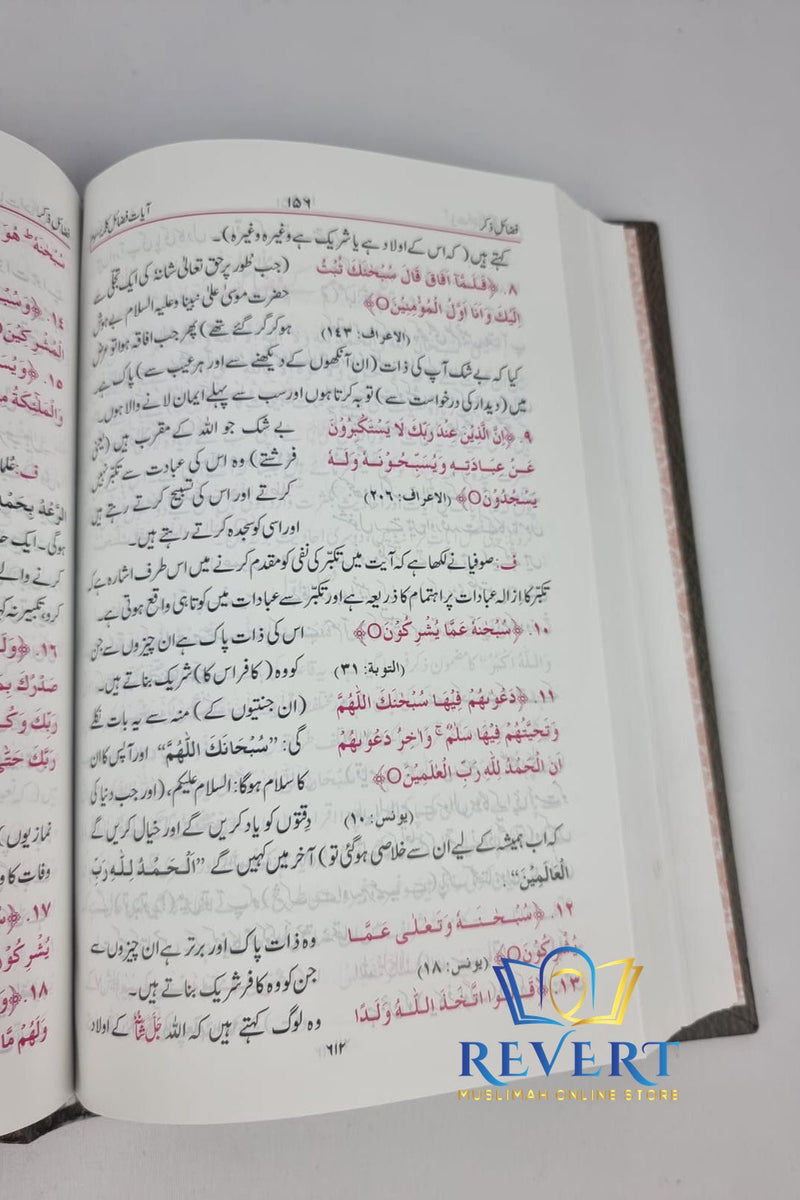 فضائل ذکر
۱۵۶
آیات فضائل کلمہ سوم
کہتے ہیں (کہ اس کے اولاد ہے یا شریک ہے وغیرہ وغیرہ)۔
۸. ﴿فَلَمَّآ اَفَاقَ قَالَ سُبْحٰنَكَ تُبْتُ
اِلَيْكَ وَاَنَا اَوَّلُ الْمُؤْمِنِيْنَO﴾
(الاعراف: ۱۴۳)
(جب طُور پر حق تعالیٰ شانہٗ کی ایک تجلّی سے
حضرت موسیٰ علیٰ نبینا وعلیہ السلام بے ہوش
ہوکر گر گئے تھے) پھر جب افاقہ ہوا تو عرض
کیا کہ بے شک آپ کی ذات (ان آنکھوں کے دیکھنے سے اور ہر عیب سے) پاک ہے۔
میں (دیدار کی درخواست سے) توبہ کرتا ہوں اور سب سے پہلے ایمان لانے والا ہوں۔
۹. ﴿اِنَّ الَّذِيْنَ عِنْدَ رَبِّكَ لَا يَسْتَكْبِرُوْنَ
عَنْ عِبَادَتِهٖ وَيُسَبِّحُوْنَهٗ وَلَهٗ
يَسْجُدُوْنَO﴾ (الاعراف: ۲۰۶)
بے شک جو اللہ کے مقرب ہیں (یعنی
فرشتے) وہ اس کی عبادت سے تکبّر نہیں
کرتے اور اس کی تسبیح کرتے رہتے ہیں
اور اسی کو سجدہ کرتے رہتے ہیں۔
ف: صوفیا نے لکھا ہے کہ آیت میں تکبّر کی نفی کو مقدم کرنے میں اس طرف اشارہ ہے کہ
تکبّر کا اِزالہ عبادات پر اہتمام کا ذریعہ ہے اور تکبّر سے عبادات میں کوتاہی واقع ہوتی ہے۔
۱۰. ﴿سُبْحٰنَهٗ عَمَّا يُشْرِكُوْنَO﴾
(التوبة: ۳۱)
اس کی ذات پاک ہے ان چیزوں سے جن
کو وہ (کافر اس کا) شریک بناتے ہیں۔
۱۱. ﴿دَعْوٰىهُمْ فِيْهَا سُبْحٰنَكَ اللّٰهُمَّ
وَتَحِيَّتُهُمْ فِيْهَا سَلٰمٌ ۚ وَاٰخِرُ دَعْوٰىهُمْ
اَنِ الْحَمْدُ لِلّٰهِ رَبِّ الْعٰلَمِيْنَO﴾
(یونس: ۱۰)
(ان جنتیوں کے) منہ سے یہ بات نکلے
گی: "سُبْحَانَكَ اللّٰهُمَّ" اور آپس کا ان
کا سلام ہوگا: السلام علیکم، (اور جب دنیا کی
دِقتوں کو یاد کریں گے اور خیال کریں گے
کہ اب ہمیشہ کے لیے ان سے خلاصی ہوگئی تو) آخر میں کہیں گے "اَلْحَمْدُ لِلّٰهِ رَبِّ
الْعَالَمِيْنَ"۔
۱۲. ﴿سُبْحٰنَهٗ وَتَعٰلٰى عَمَّا
يُشْرِكُوْنَO﴾ (یونس: ۱۸)
وہ ذات پاک اور برتر ہے ان چیزوں سے
جن کو وہ کافر شریک بناتے ہیں۔
۱۳. ﴿قَالُوا اتَّخَذَ اللّٰهُ وَلَدًا
وہ لوگ کہتے ہیں کہ اللہ جَلَّ شَانُہٗ کے اولاد
۶۱۲
فضائل ذکر
سُبْحٰنَهٗ ؕ هُوَ
۱۴. ﴿وَسُبْ
الْمُشْرِكِيْنَO
۱۵. ﴿وَيُسَ
وَالْمَلٰٓئِكَةُ مِ
ف: عُلما
الرَّعْدُ بِحَمْ
ہوگی۔ ایک حد
کرنے والے
کرو، تکبیر نہ ک
۱۶. ﴿وَلَ
صَدْرُكَ بِمَ
رَبِّكَ وَكُ
رَبَّكَ حَتّٰى
نمازیوں
وفات کا و
۱۷. ﴿سُ
يُشْرِكُوْنَO
۱۸. ﴿وَ
وَلَهُمْ مَّا
REVERT
MUSLIMAH ONLINE STORE